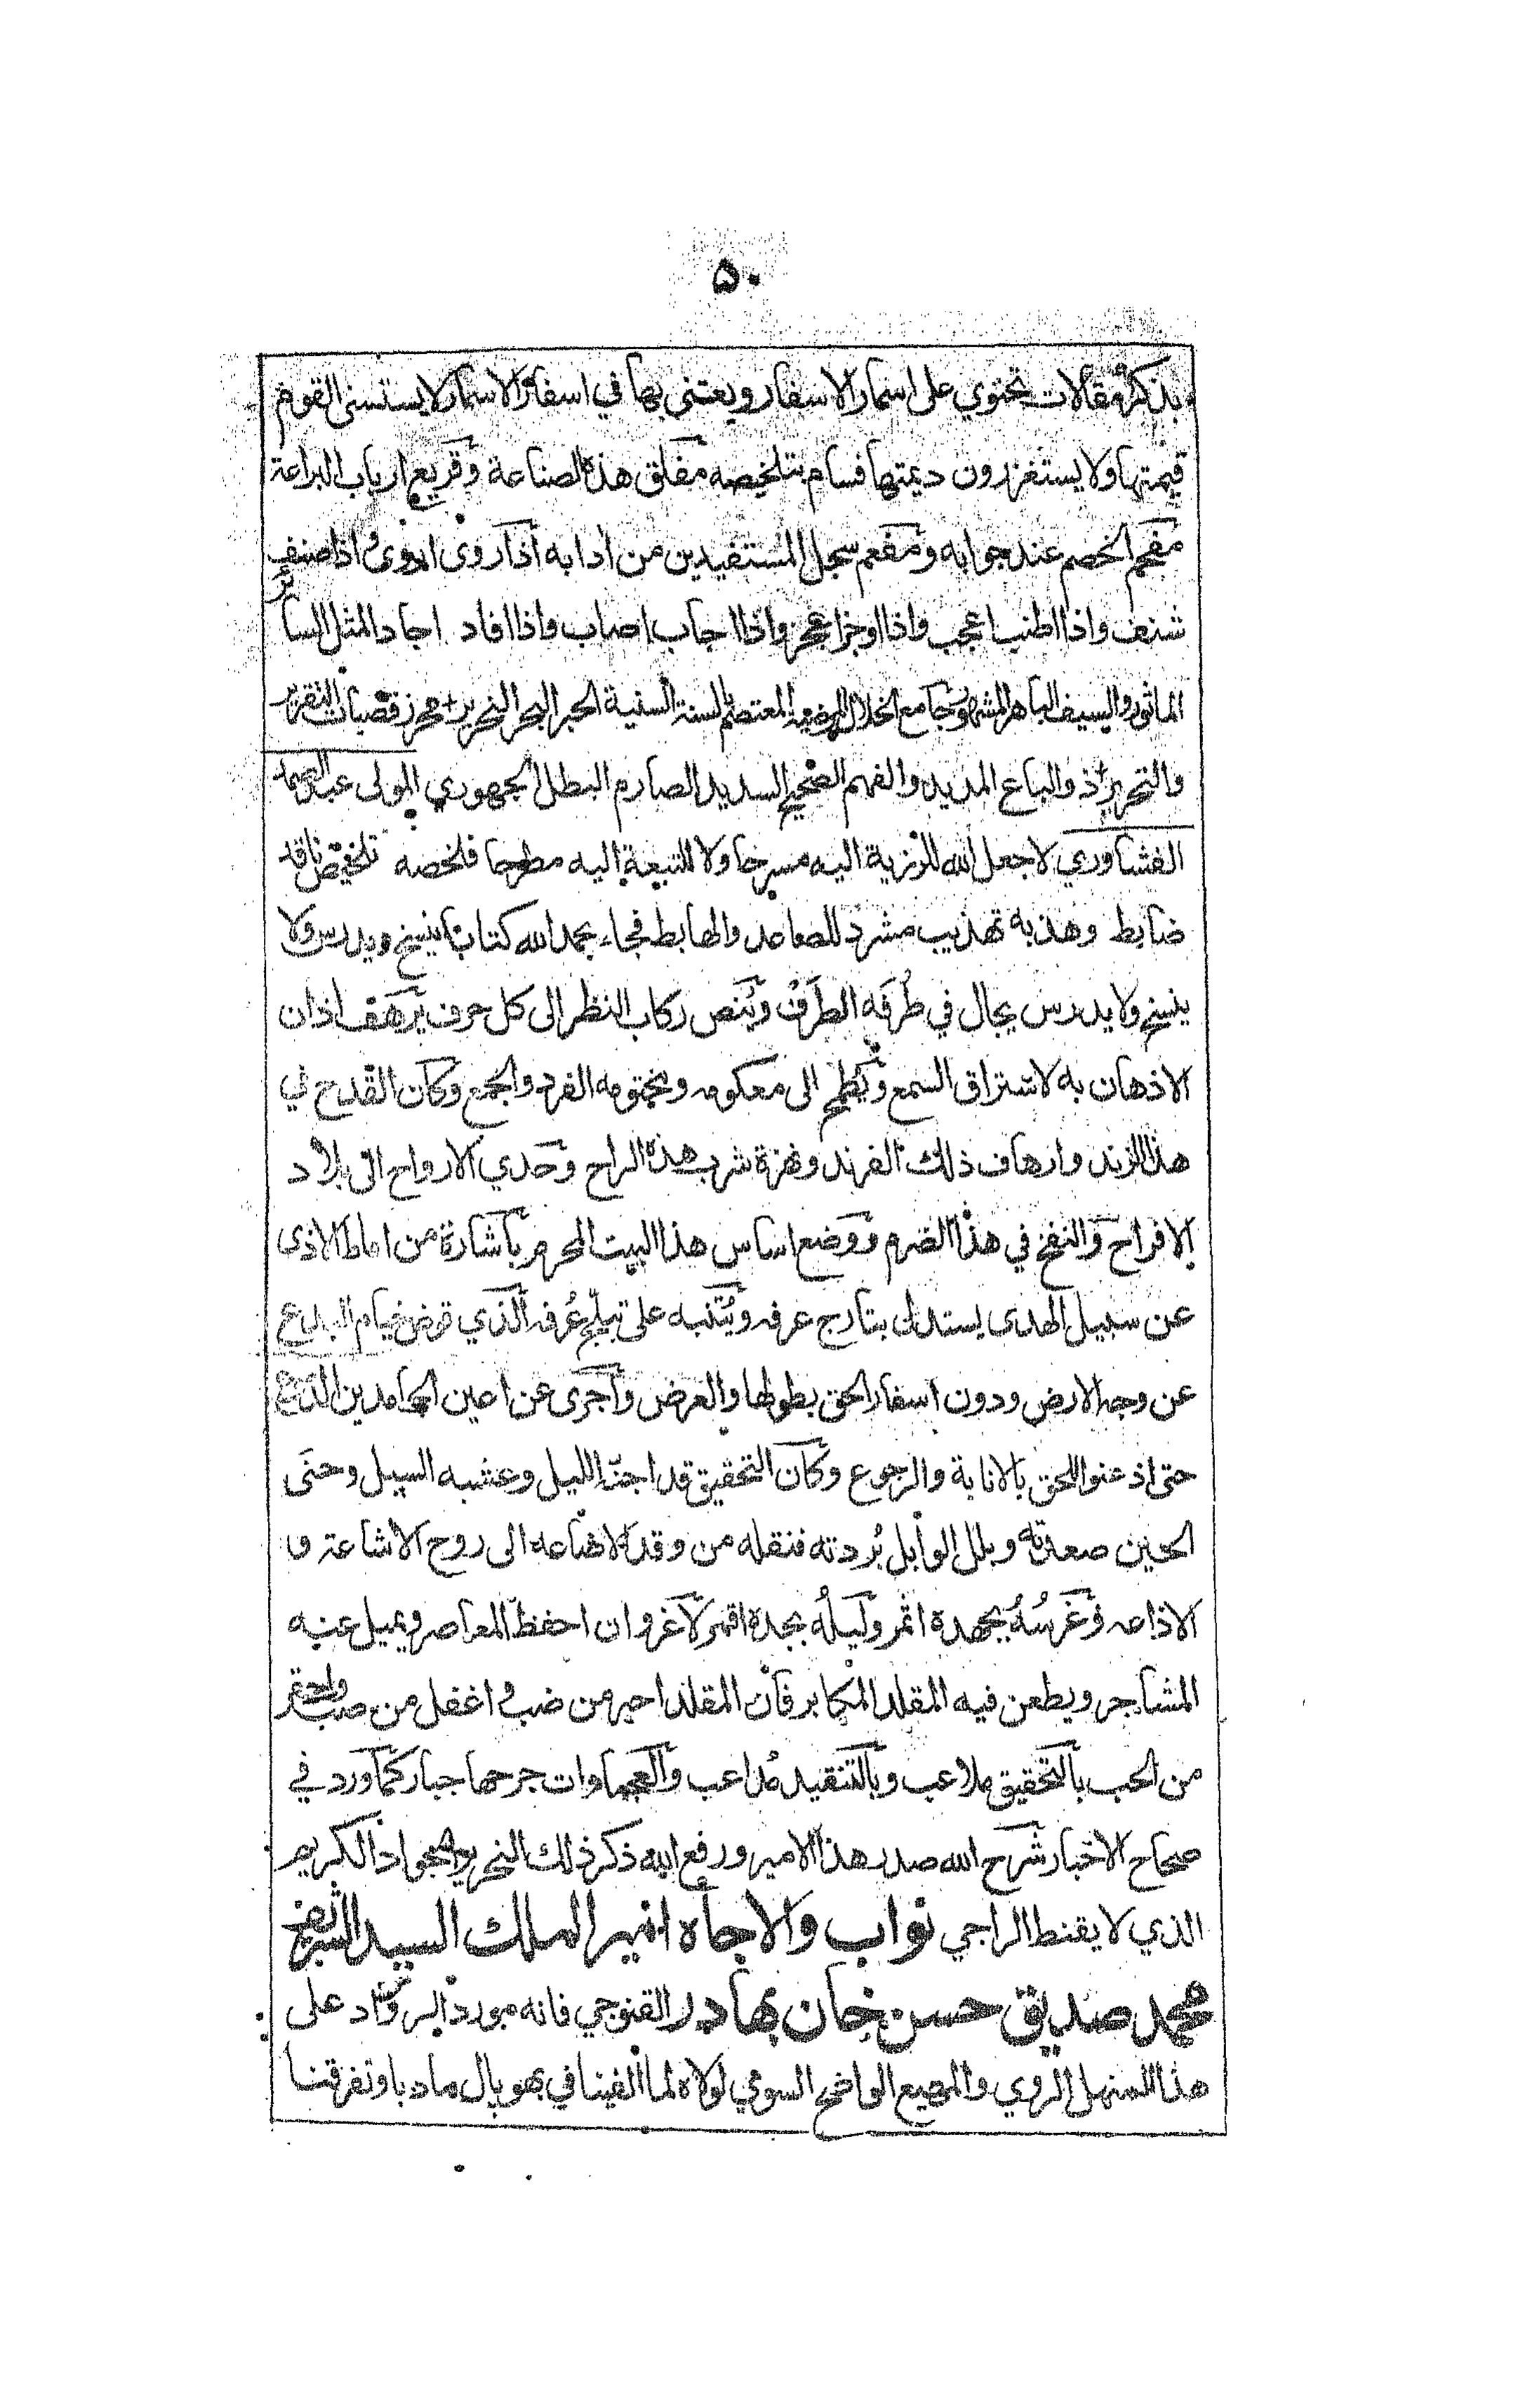 ۵۰
بذكره مقالات تحتوي على اسمار الاسفار ويعتنى بها في اسفار الاسمار لا يستسنى القوم
قيمتها ولا يستغزرون ديمتها فسام بتلخيصه مفلق هذه الصناعة وقريع ارباب البراعة
مفحم الخصم عند جوابه ومفعم سجل المستفيدين من ادابه اذا روى اروى و اذا صنف
شنف واذا اطنب اعجب واذا اوجز اعجز واذا اجاب اصاب واذا افاد اجاد المثل السائر
الماثور والسيف الباهر المشهور جامع الخلال المرضية المعتصم بالسنة السنية الحبر البحر النحرير محرز قصبات التقرير
والتحرير ذو الباع المديد والفهم الصحيح السديد الصارم البطل الجهوري المولى عبد الصمد
الفشاوري لا جعل الله للرزية اليه مسرحا ولا للتبعة اليه مطرحا فلخصه تلخيص ناقد
ضابط وهذبه تهذيب مشرد للصاعد والهابط فجاء بحمد الله كتابا ينسخ ويدرس ولا
ينسخ ولا يدرس يجال في طُرفه الطَرف ويُنص ركاب النظر الى كل حرف يرهف اذان
الاذهان به لاستراق السمع ويُطمح الى معكومه ومختومه الفرد والجمع وكان القدح في
هذا الزند وارهاف ذلك الفرند ونهزة شرب هذه الراح وحدي الارواح الى بلاد
الافراح والنفخ في هذا الضرم ووضع اساس هذا البيت المحرم باشارة من اماط الاذى
عن سبيل الهدى يستدل بتارج عرفه ويُتنبه على تبلّج عُرفه الذي قوض خيام البدع
عن وجه الارض ودون اسفار الحق بطولها والعرض واجرى عن اعين الجامدين الدموع
حتى اذعنوا للحق بالانابة والرجوع وكان التحقيق قد اجنّه الليل وعشبه السيل وحنى
الحين صعدته وبلل الوابل بُردته فنقله من وقدة الاضاعه الى روح الاشاعة و
الاذاعه وغَرسُهُ بجهده اثمر وليلُه بجده اقمر لا غرو ان احفظ المعاصر ويميل عنه
المشاجر ويطعن فيه المقلد المكابر فان المقلد احير من ضب و اغفل من صب واحقر
من الحب بالتحقيق ملاعب وبالتنقيد مُداعب والعجماوات جرحها جبار كما ورد في
صحاح الاخبار شرح الله صدر هذا الامير ورفع الله ذكر ذلك النحرير الجواد الكريم
الذي لا يقنط الراجي نواب والاجاه امير الملك السيد الشريف
محمد صديق حسن خان بهادر القنوجي فانه مورد البر على
هذا المنهل الروي والمهيع الواضح السوي لولاه لما الفينا في بهوپال مادبا وتفرقنا